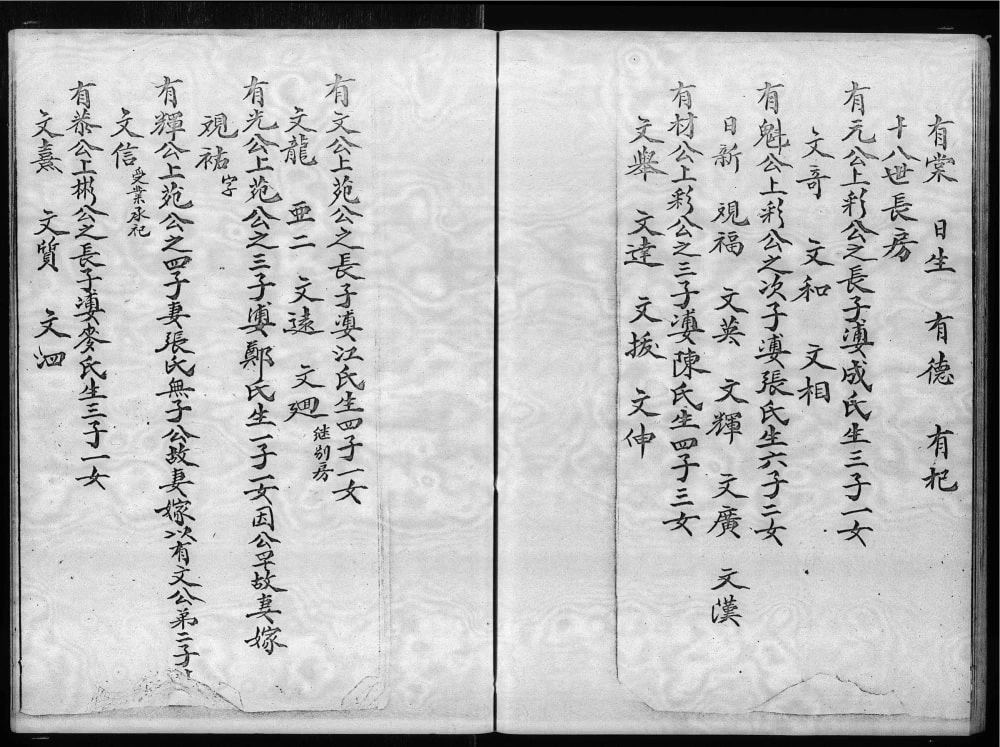 有棠 日生 有德 有杞
十八世長房
有元公上彩公之長子凄成氏生三子一女
文奇 文和 文相
有魁公上彩公之次子凄張氏生六子二女
日新 視福 文英 文輝 文廣 文漢
有材公上彩公之三子凄陳氏生四子三女
文舉 文達 文援 文伸
有文公上苑公之長子凄江氏生四子一女
文龍 亜二 文遠 文廻 继别房
有光公上苑公之三子凄鄭氏生一子一女因公早故妻嫁
視祐字
有輝公上苑公之四子妻張氏無子公故妻嫁以有文公弟二子
文信 受業承祀
有恭公上彬公之長子凄麥氏生三子一女
文熹 文質 文泗